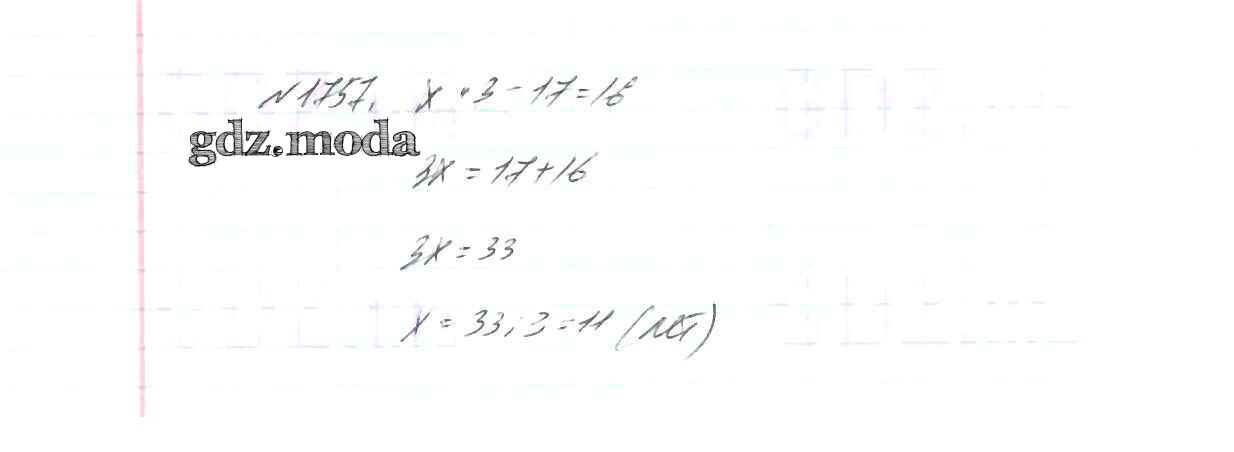 №1757. x · 3 - 17 = 16
gdz.moda
3x = 17 + 16
3x = 33
x = 33 : 3 = 11 (лет)